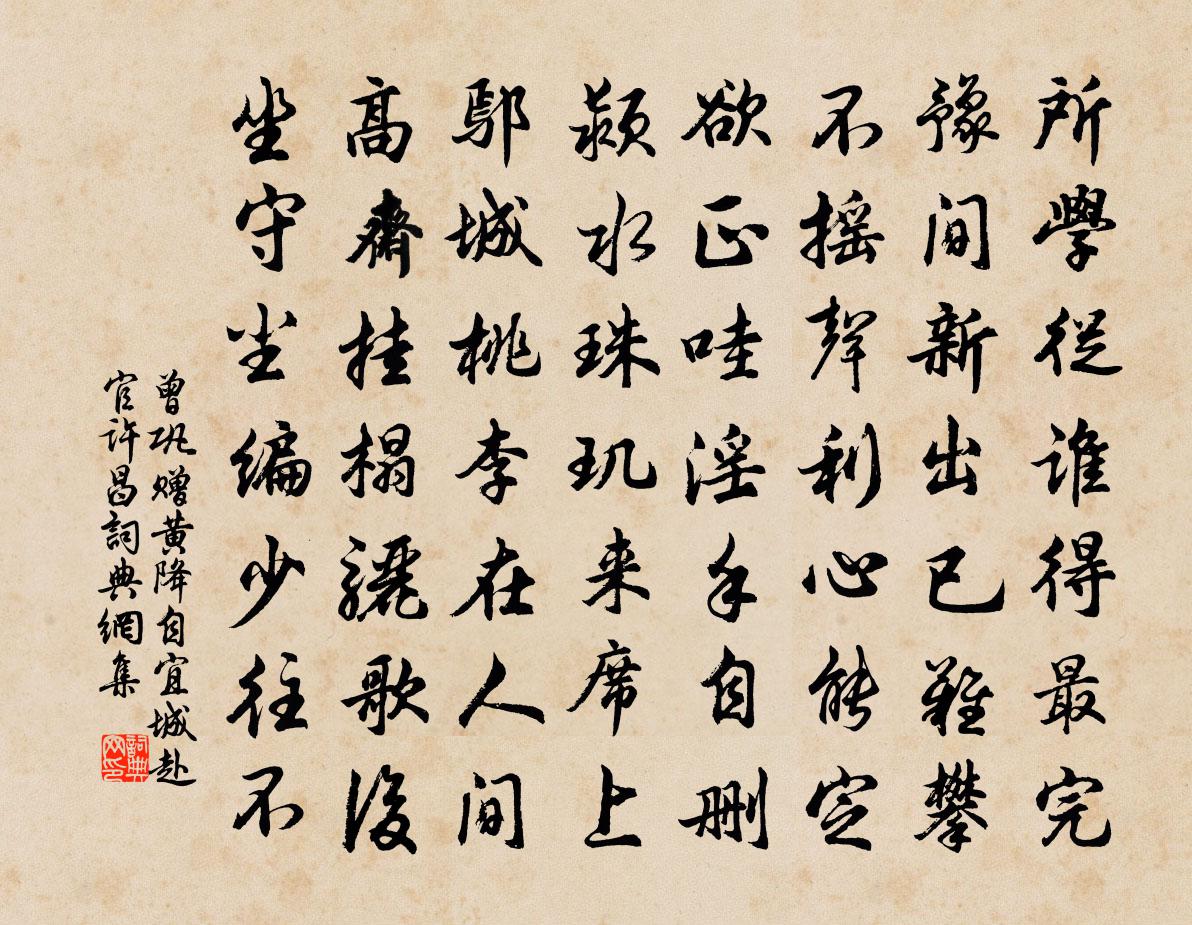 所學從誰得最完
豫間新出已難攀
不搖聲利心能定
欲正哇淫手自刪
潁水珠玑来席上
鄢城桃李在人间
高齋挂榻驪歌後
坐守尘编少往不
曾巩赠黄降自宜城赴
官許昌詞典網集
詞典网印